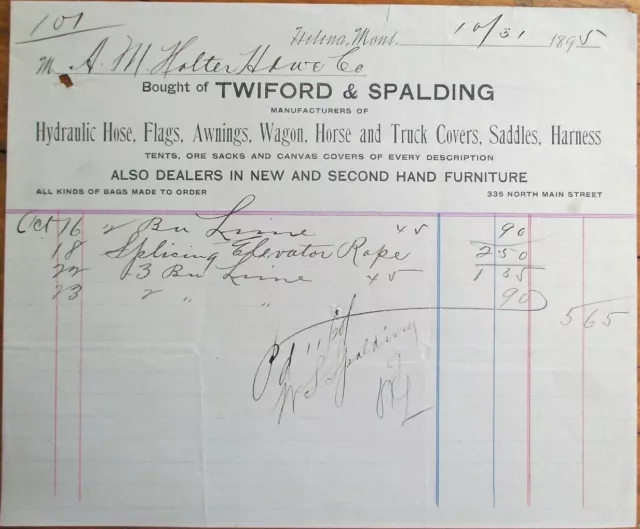 101
Helena, Mont. 10/31 1895
M A. M. Holter Hdwe Co
Bought of TWIFORD & SPALDING
MANUFACTURERS OF
Hydraulic Hose, Flags, Awnings, Wagon, Horse and Truck Covers, Saddles, Harness
TENTS, ORE SACKS AND CANVAS COVERS OF EVERY DESCRIPTION
ALSO DEALERS IN NEW AND SECOND HAND FURNITURE
ALL KINDS OF BAGS MADE TO ORDER 335 NORTH MAIN STREET
Oct 16 2 Bu Lime 45 90
18 Splicing Elevator Rope 2 50
22 3 Bu Lime 45 1 35
23 2 " " 90 5 65
Pd 11/20
W S Spalding